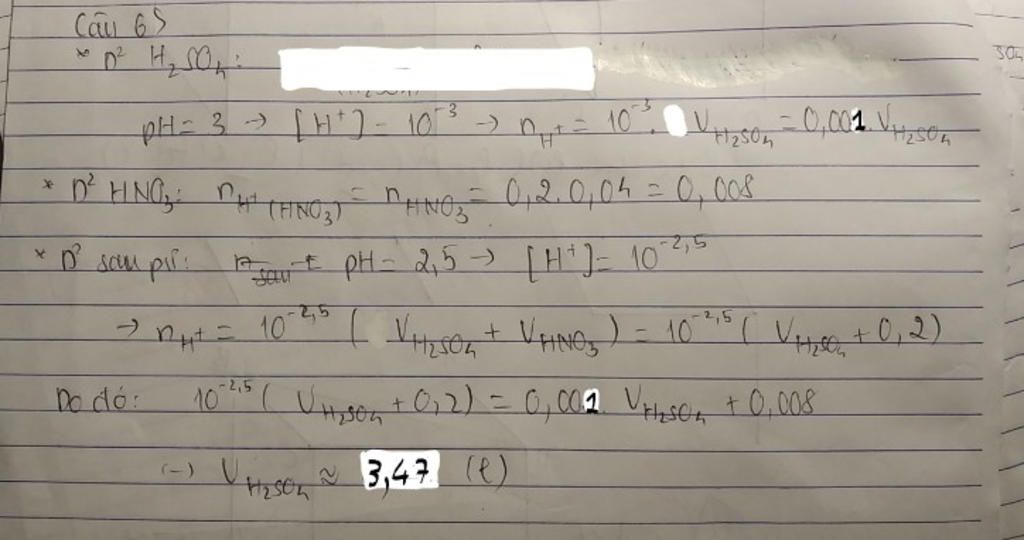 Câu 6)
* D² H₂SO₄:
pH = 3 → [H⁺] = 10⁻³ → n_H⁺ = 10⁻³. V_H₂SO₄ = 0,001. V_H₂SO₄
* D² HNO₃: n_H⁺ (HNO₃) = n_HNO₃ = 0,2.0,04 = 0,008
* D² sau pư: pH = 2,5 → [H⁺] = 10^-2,5
→ n_H⁺ = 10^-2,5 ( V_H₂SO₄ + V_HNO₃ ) = 10^-2,5 ( V_H₂SO₄ + 0,2)
Do đó: 10^-2,5 ( V_H₂SO₄ + 0,2) = 0,001 V_H₂SO₄ + 0,008
(-) V_H₂SO₄ ≈ 3,47 (l)